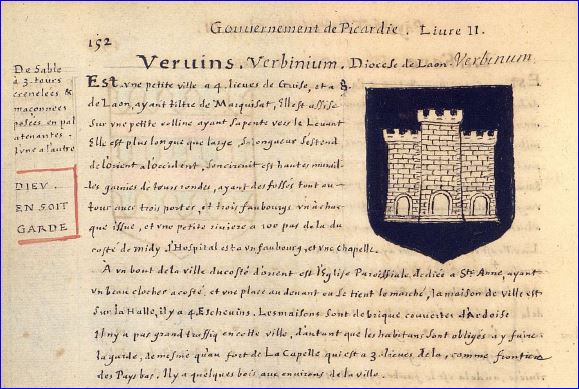 Gouuernement de Picardie. Liure II.
152
Veruins. Verbinium. Diocese de Laon. Verbinum
De Sable
à 3 tours
crenelées &
maçonnées
posées en pal
atenantes
l'vne a l'autre
DIEV.
EN SOIT
GARDE
Est vne petite ville a 4. lieues de Guise, et a 8.
de Laon, ayant tiltre de Marquisat, Elle est assise
sur vne petite colline ayant sa pente vers le Leuant
Elle est plus longue que large, sa longueur s'estend
de l'orient a l'occident, son circuit est hautes murail-
les garnies de tours rondes, ayant des fossés tout au-
tour auec trois portes, et trois fauxbourgs vn a chac-
que issue, et vne petite riuiere a 100 pas de la du
costé de midy. l'Hospital est a vn fauxbourg, et vne chapelle.
A vn bout de la ville du costé d'orient est l'Eglise Paroissiale dediée a Ste Anne, ayant
vn beau clocher a costé, et vne place au deuant ou se tient le marché, la maison de ville est
sur la Halle, il y a 4. Escheuins. Les maisons sont de brique couuertes d'Ardoise
Il n'y a pas grant traffiq en cette ville, d'autant que les habitans sont obligés a y faire
la garde, de mesme qu'au fort de La Capelle qui est a 3. lieues de la, comme frontiere
des Pays bas. Il y a quelques bois aux enuirons de la ville.